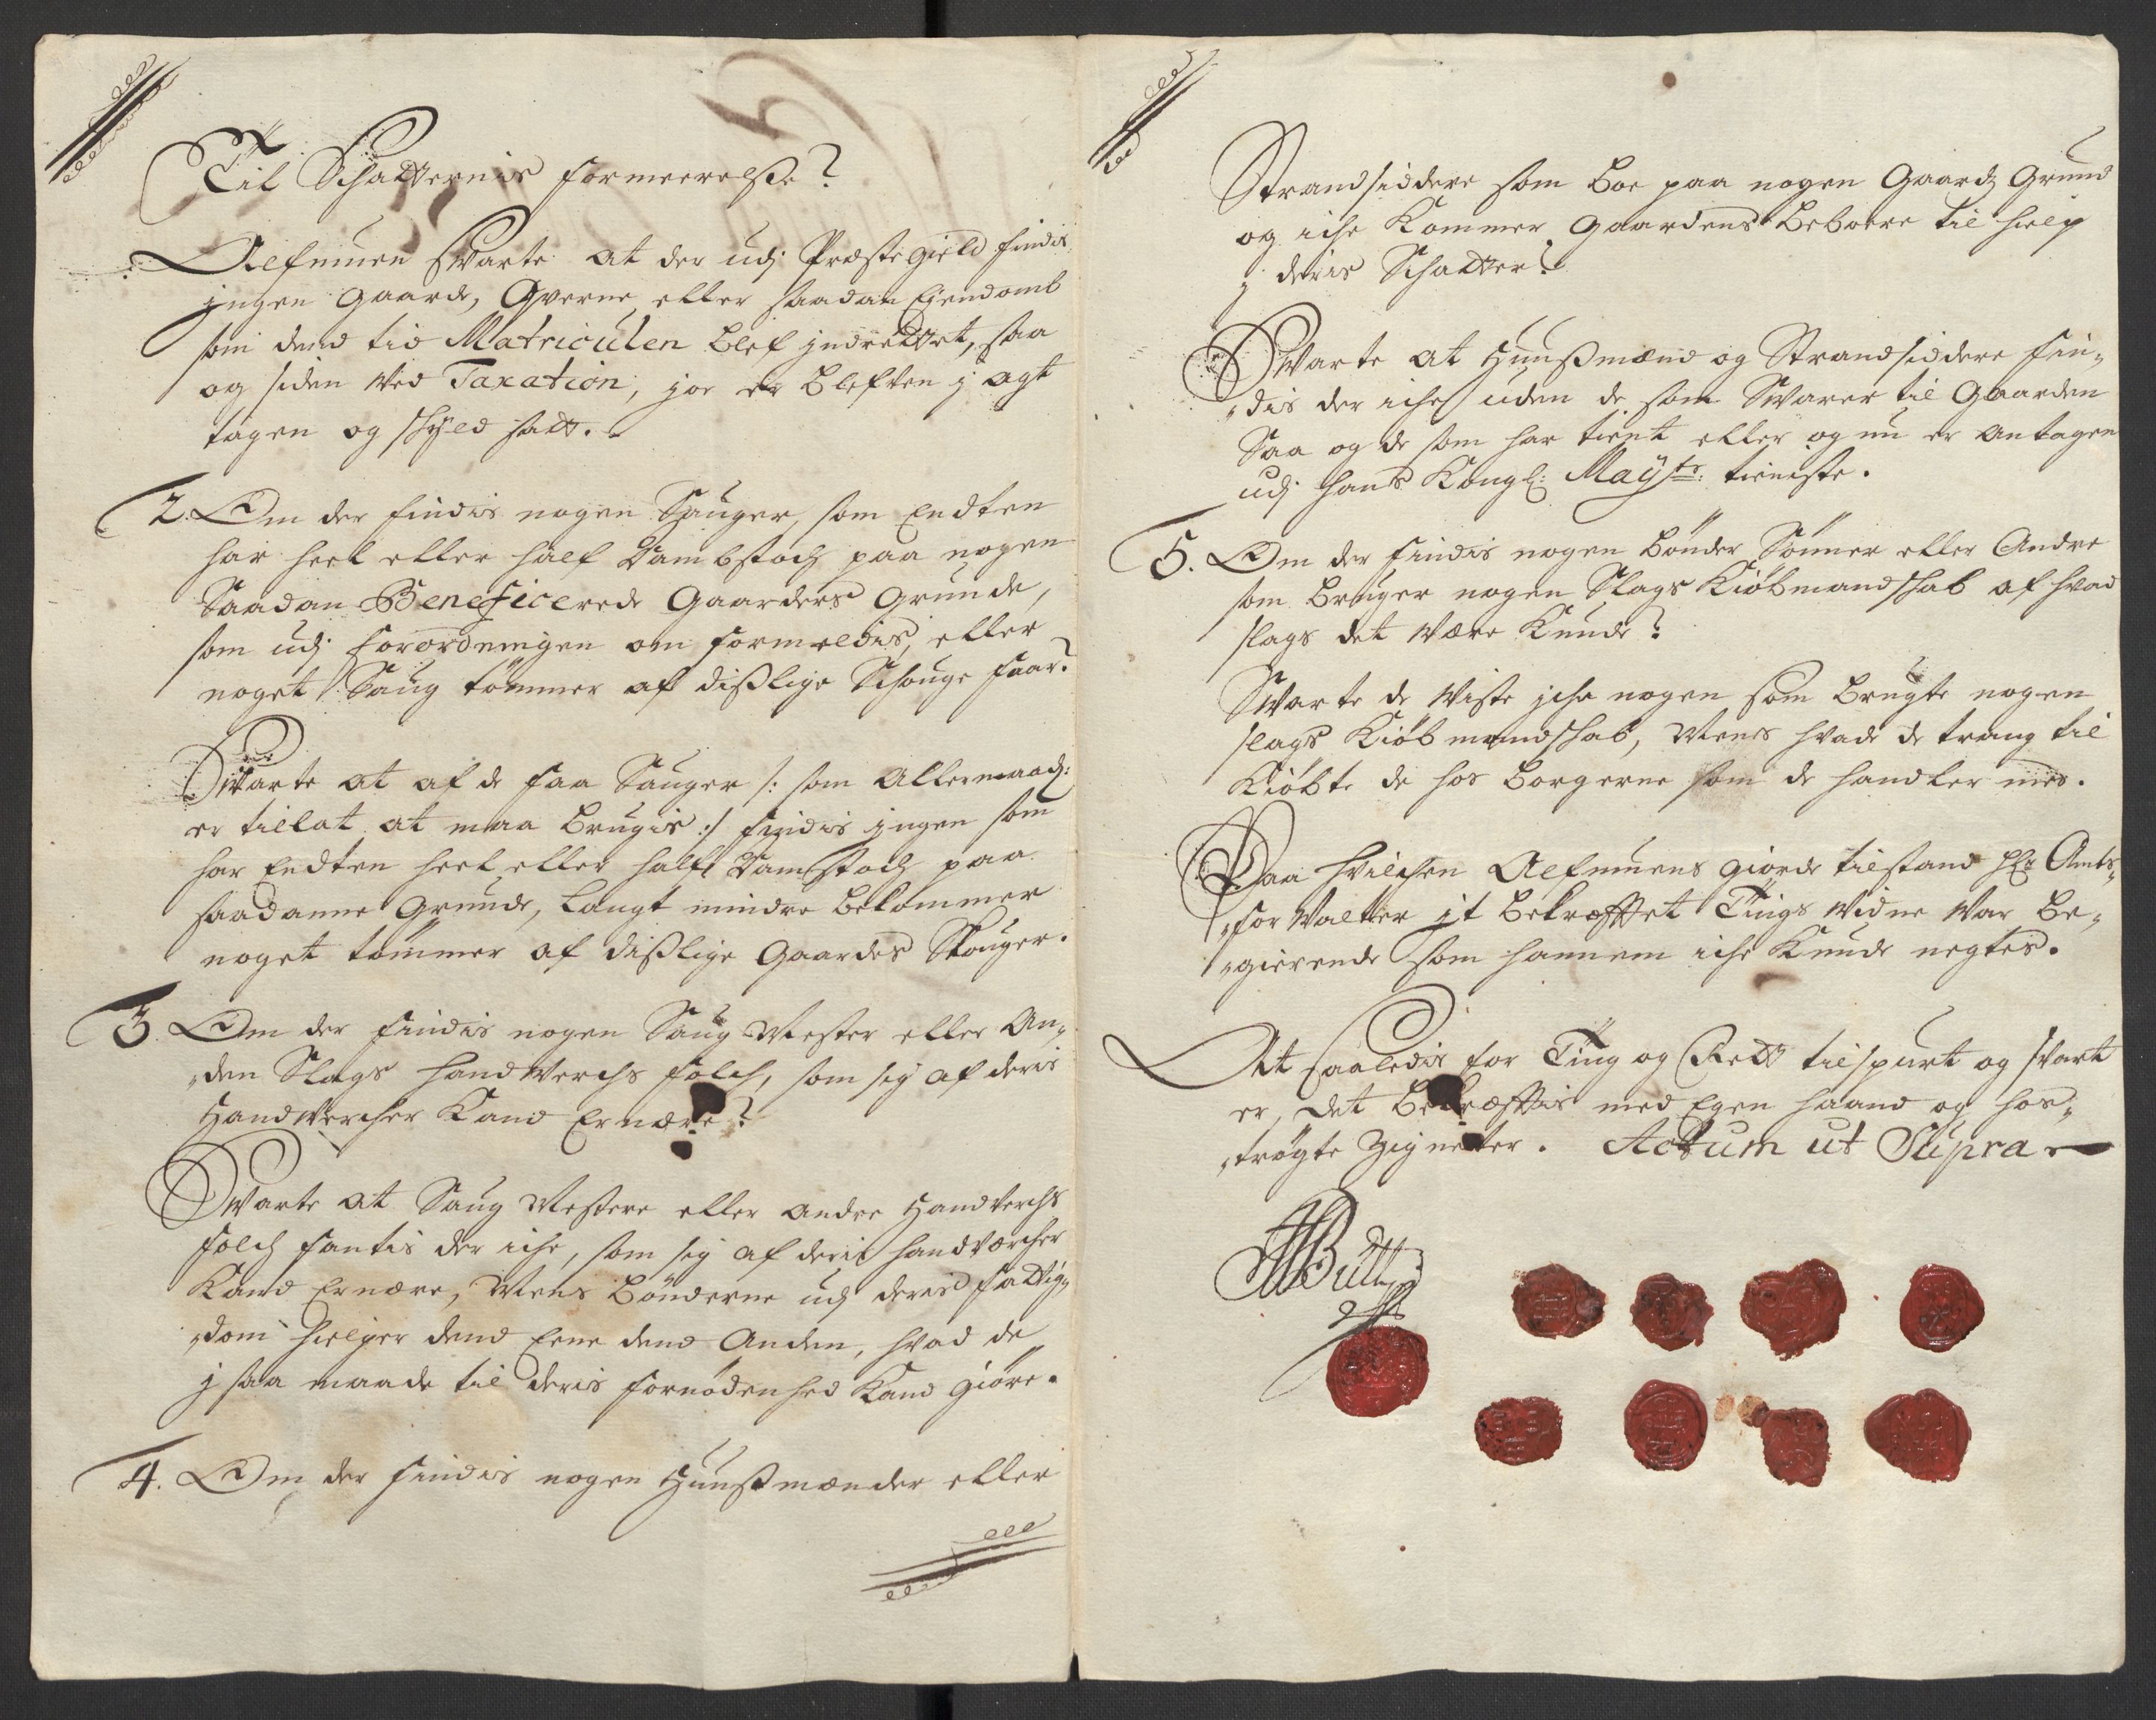 Til Schatternis formeerelße?
Alfmuen Svarte at der udj Præstegield findis
jngen Gaarde, Qverne eller saadan Eiendomb
som dend tid Matriculen blef jndrettet, saa
og siden ved Taxation, joe er blefven j agt
tagen og schyld satt.
2. Om der findis nogen Sauger, som Endten
har heel eller half Dambstoch paa nogen
Saadan Beneficerede Gaarders Grunde,
som udj forordningen om formeldis, eller
noget Saug tømmer af dißlige Schouge faar?
Svarte at af de faa Sauger /: som allernaad:
er tillat at maa brugis :/ findis jngen som
har Endten heel eller half Damstoch paa
saadanne Grunde, langt mindre bekommer
noget tømmer af dißlige Gaardes Skouger.
3. Om der findis nogen Saug Mester eller An„
„den Slags handverchs folch, som sig af deris
Handvercher Kand Ernære?
Svarte at Saug Mestere eller andre Handverchs
folch fantis der iche, som sig af deris handvercher
Kand Ernære, Mens bønderne udj deris fattig„
„dom hielper dend Eene dend Anden, hvad de
j saa maade til deris fornødenhed Kand giøre.
4. Om der findis nogen Huußmænder eller
Strandsiddere som boe paa nogen Gaards Grund
og iche Kommer Gaardens beboere til hielp
j deris Schatter?
Svarte at Huußmænd og Strandsiddere fin„
„dis der iche uden de som Svarer til Gaarden
Saa og de som har tient eller og nu er antagen
udj hans Kongl: Mayts: tieniste.
5. Om der findis nogen bønder Sønner eller Andre
som bruger nogen Slags Kiøbmandschab af hvad
slags det være Kunde?
Svarte de viste jche nogen som brugte nogen
slags Kiøbmandschab, Mens hvad de trang til
Kiøbte de hos borgerne som de handler med.
Paa hvilchen Alfmuens giorde tilstand Hr Amts„
„forvalter it bekræfftet Tings vidne var be„
„gierende som hannem iche Kunde negtes.
At saaledis for Ting og Rett tilspurt og svart
er, det bekræfftis med Egen haand og hos„
„trøgte Zignetter. Actum ut Supra